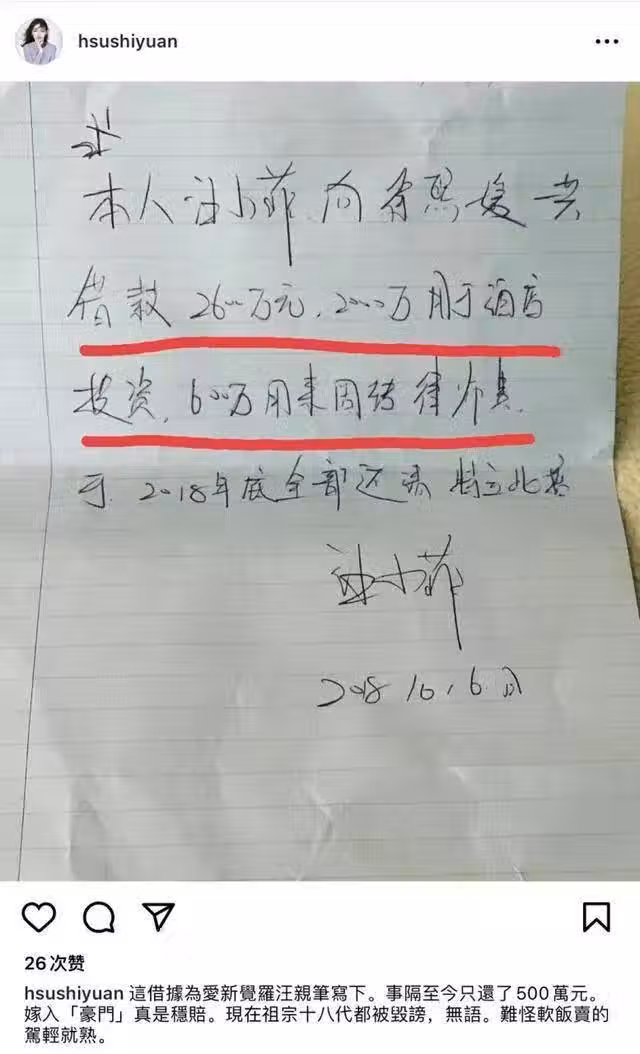 hsushiyuan
本人汪小菲向徐熙媛共
借款2600万元.2000万用于酒店
投资,600万用来周转律师费.
于2018年底全部还清 特立此券
汪小菲
2018 10.6日
26次赞
hsushiyuan 這借據為愛新覺羅汪親筆寫下。事隔至今只還了500萬元。
嫁入「豪門」真是穩賠。現在祖宗十八代都被毀謗，無語。難怪軟飯賣的
駕輕就熟。